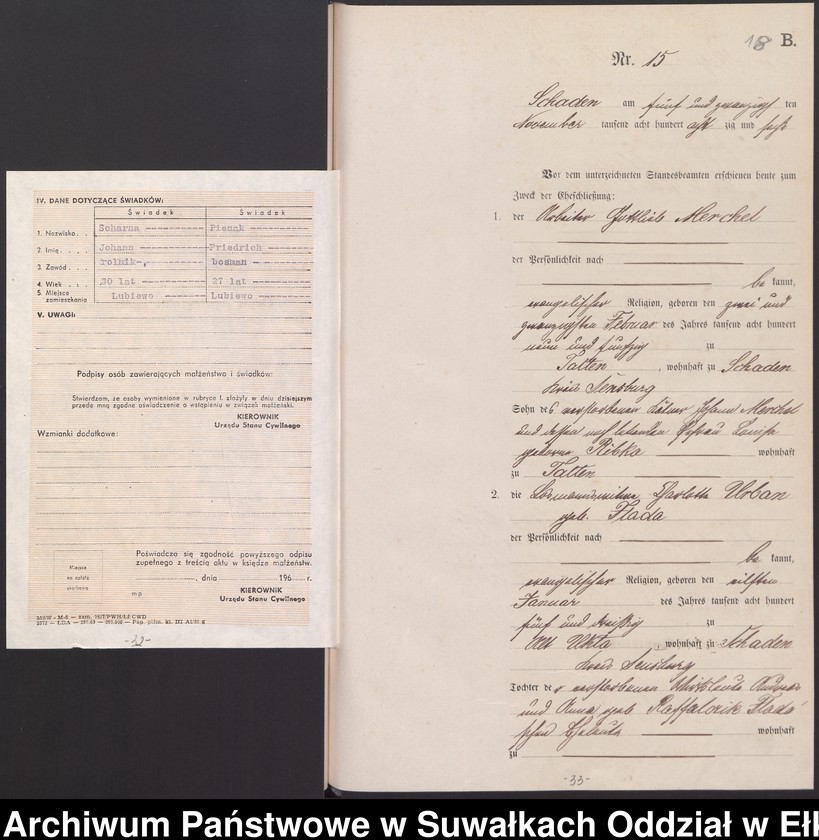 IV. DANE DOTYCZĄCE ŚWIADKÓW:
Świadek Świadek
1. Nazwisko. . . Scharna Piesak
2. Imię. . . . Johann Friedrich
3. Zawód. . . rolnik bosman
4. Wiek . . . 30 lat 27 lat
5. Miejsce zamieszkania Lubiewo Lubiewo
V. UWAGI:
Podpisy osób zawierających małżeństwo i świadków:
Stwierdzam, że osoby wymienione w rubryce I. złożyły w dniu dzisiejszym
przede mną zgodne oświadczenie o wstąpieniu w związek małżeński.
KIEROWNIK
Urzędu Stanu Cywilnego
Wzmianki dodatkowe:
Poświadcza się zgodność powyższego odpisu
zupełnego z treścią aktu w księdze małżeństw.
Miejsce
na opłatę
skarbową
, dnia 196 r.
mp
KIEROWNIK
Urzędu Stanu Cywilnego
-32-
18 B.
Nr. 15
Schaden am fünf und zwanzigsten
November tausend acht hundert acht zig und sechs
Vor dem unterzeichneten Standesbeamten erschienen heute zum
Zweck der Eheschließung:
1. der Arbeiter Gottlieb Merchel
der Persönlichkeit nach
be kannt,
evangelischer Religion, geboren den zwei und
zwanzigsten Februar des Jahres tausend acht hundert
neun und fünfzig zu
Talten, wohnhaft zu Schaden
Kreis Sensburg
Sohn des verstorbenen Käthner Johann Merchel
und dessen noch lebenden Ehefrau Louise
geborene Ribka wohnhaft
zu Talten
2. die Losmannswittwe Charlotte Urban
geb. Flada
der Persönlichkeit nach
be kannt,
evangelischer Religion, geboren den eilften
Januar des Jahres tausend acht hundert
fünf und dreißig zu
Alt Ukta, wohnhaft zu Schaden
Kreis Sensburg
Tochter der verstorbenen
und Anna geb. Flada
schen Eheleute wohnhaft
zu
-33-
Archiwum Państwowe w Suwałkach Oddział w Ełk